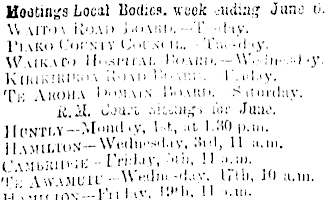 Meetings Local Bodies, week ending June 6.
WAITOA ROAD BOARD.—Tuesday.
PIAKO COUNTY COUNCIL.—Tuesday.
WAIKATO HOSPITAL BOARD.—Wednesday.
KIRIKIRIROA ROAD BOARD.—
TE AROHA DOMAIN BOARD. Saturday.
R.M. Court sittings for June.
HUNTLY—Monday, 1st, at 1.30 p.m.
HAMILTON—Wednesday, 3rd, 11 a.m.
CAMBRIDGE—Friday, 5th, 11 a.m.
TE AWAMUTU—Wednesday, 17th, 10 a.m.
HAMILTON—Friday, 19th, 11 a.m.